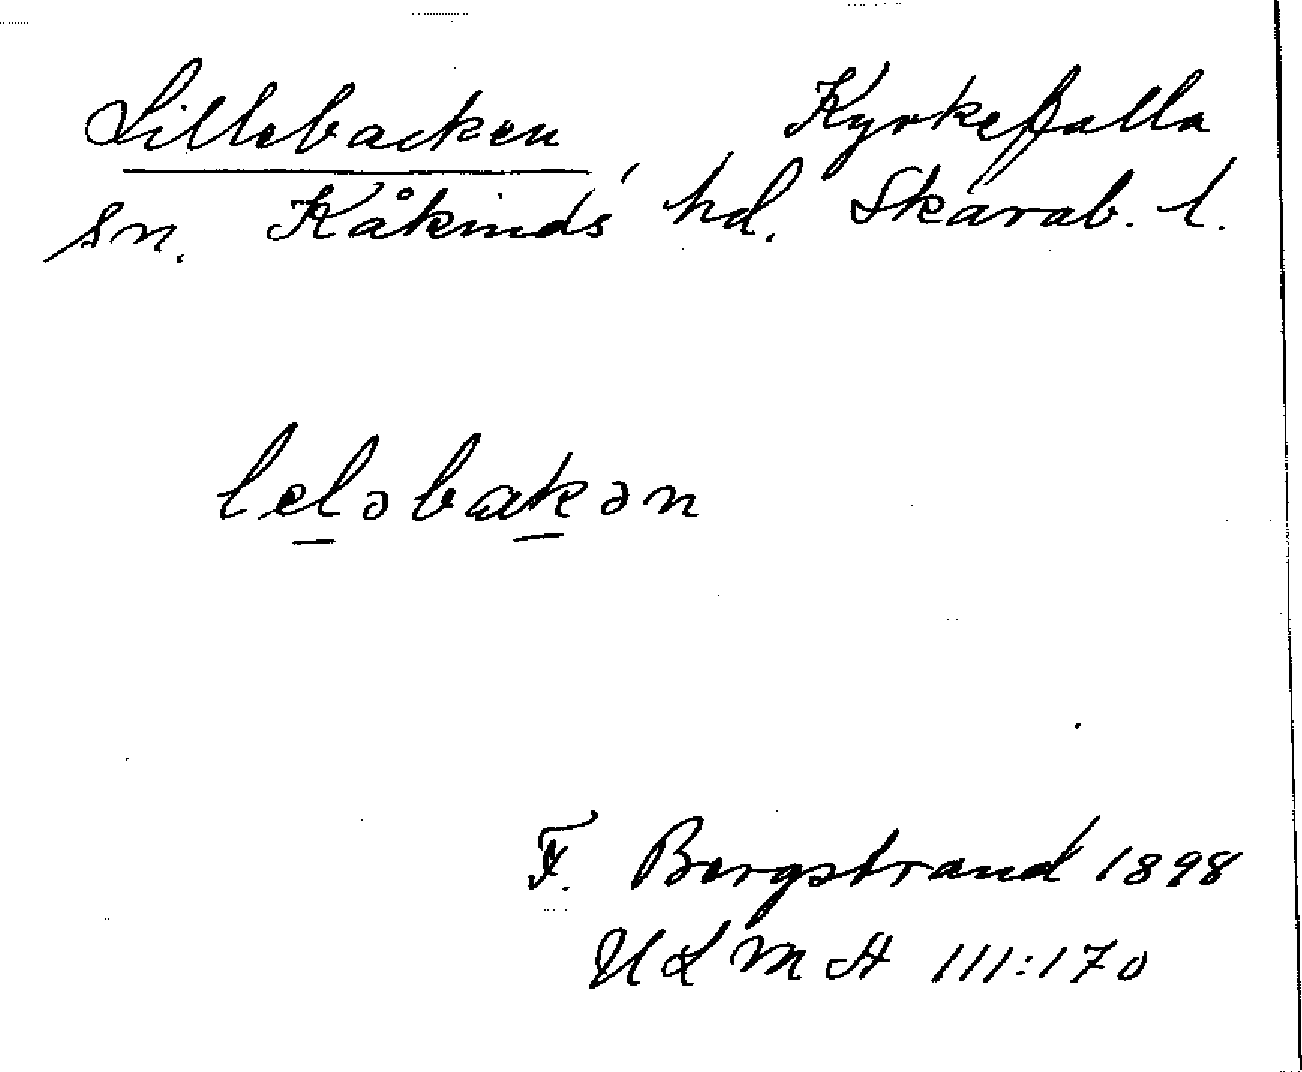 Lillebacken, Kyrkefalla
sn. Kåkinds hd. Skarab. l.
leləbakən
F. Bergstrand 1898
ULMA 111:170